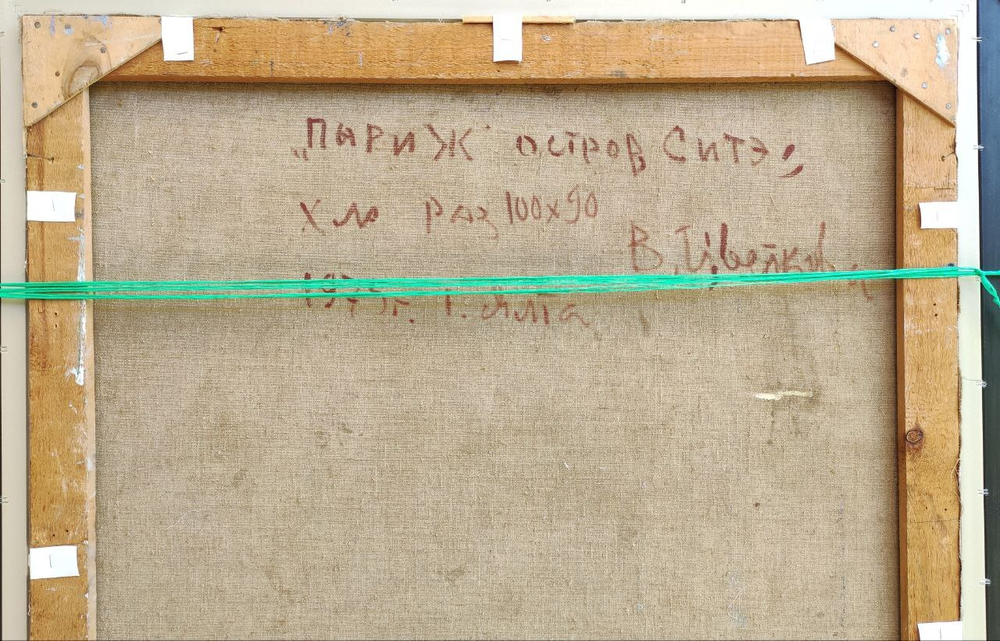 „ПАРИЖ остров Ситэ"
хм раз 100х90
В. Цветкова
г. Ялта